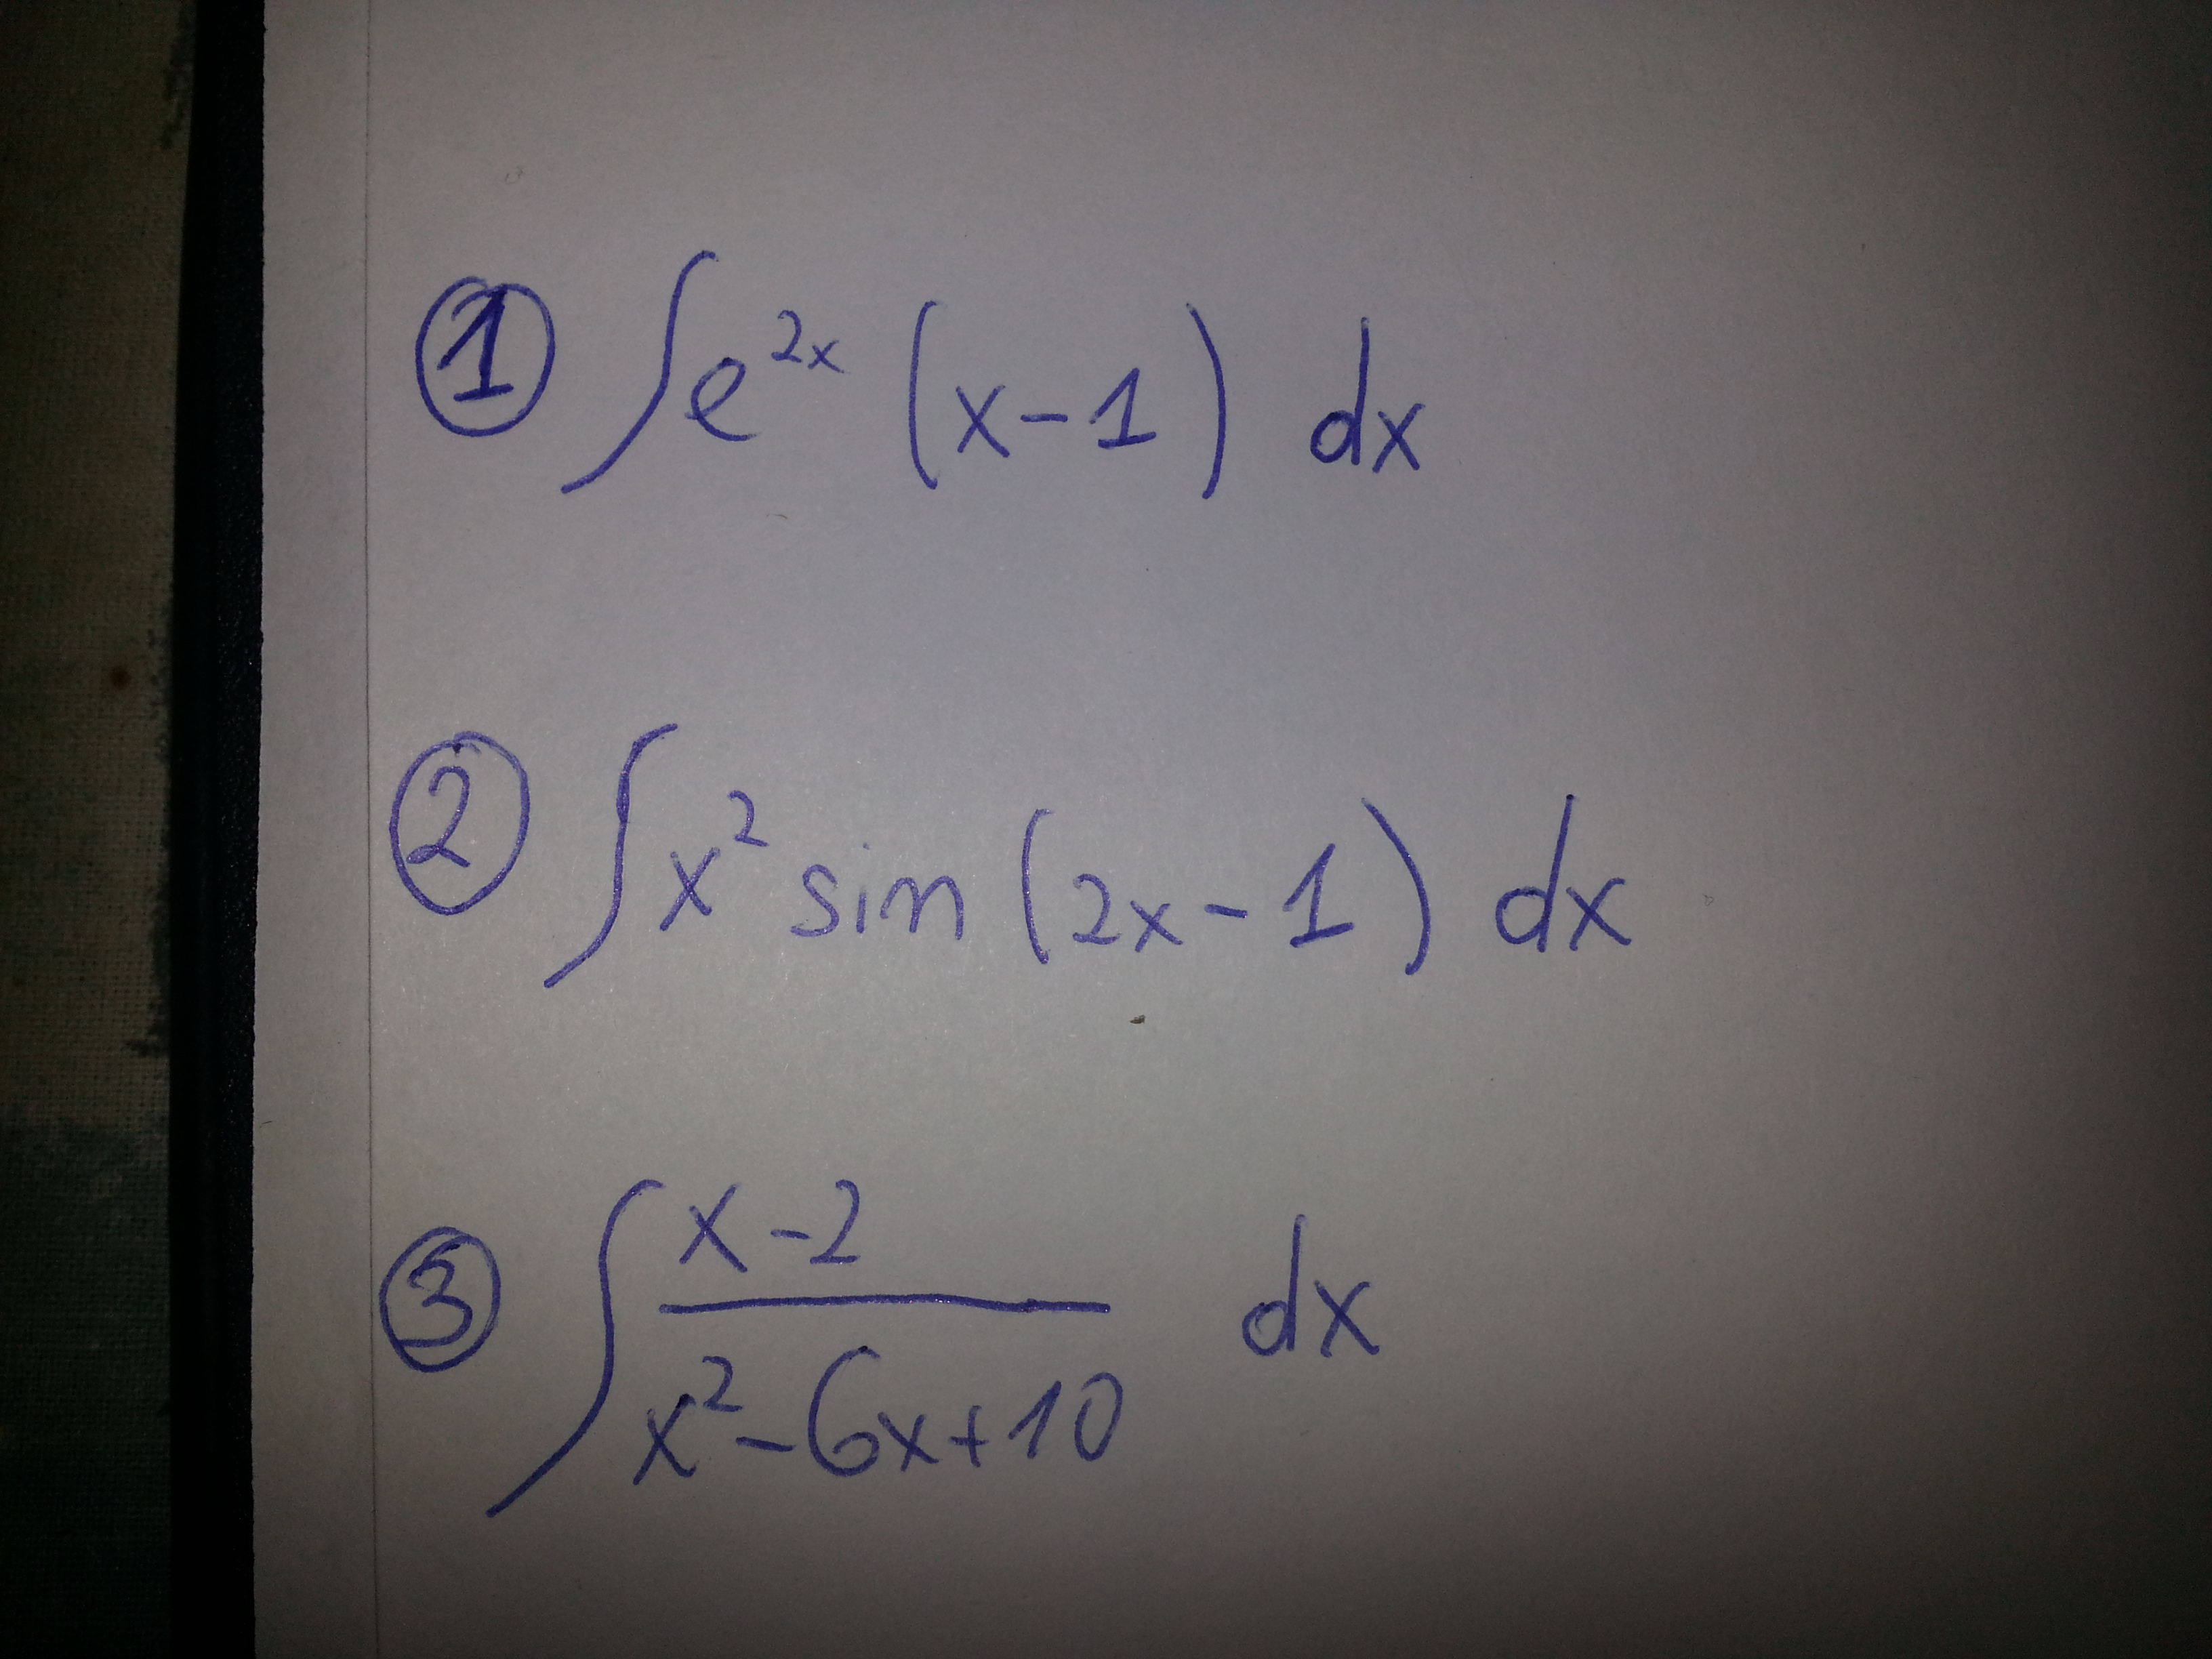 ① ∫ e^{2x} (x-1) dx
② ∫ x² sin (2x-1) dx
③ ∫ \frac{x-2}{x²-6x+10} dx